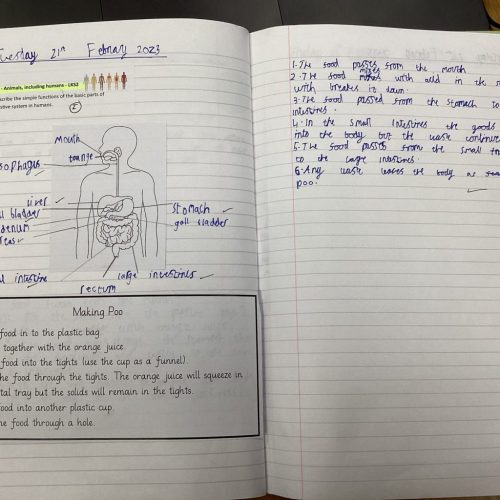 Tuesday 21st Febuary 2023
- Animals, including humans - UKS2
scribe the simple functions of the basic parts of
estive system in humans.
mouth
tounge
esophagus
liver
ll bladder
denum
reas
stomach
gall bladder
intestine
large intestines
rectum
Making Poo
food in to the plastic bag
together with the orange juice
food into the tights (use the cup as a funnel).
he food through the tights. The orange juice will squeeze in
tal tray but the solids will remain in the tights.
food into another plastic cup.
he food through a hole.
1. The food passes from the mouth
2. The food mixes with acid in the
with breakes it down.
3. The food passed from the stomach to
intestines.
4. In the small intestines the goods
into the body but the waste continue
5. The food passes from the small
to the large intestines.
6. Any waste leaves the body as
poo.